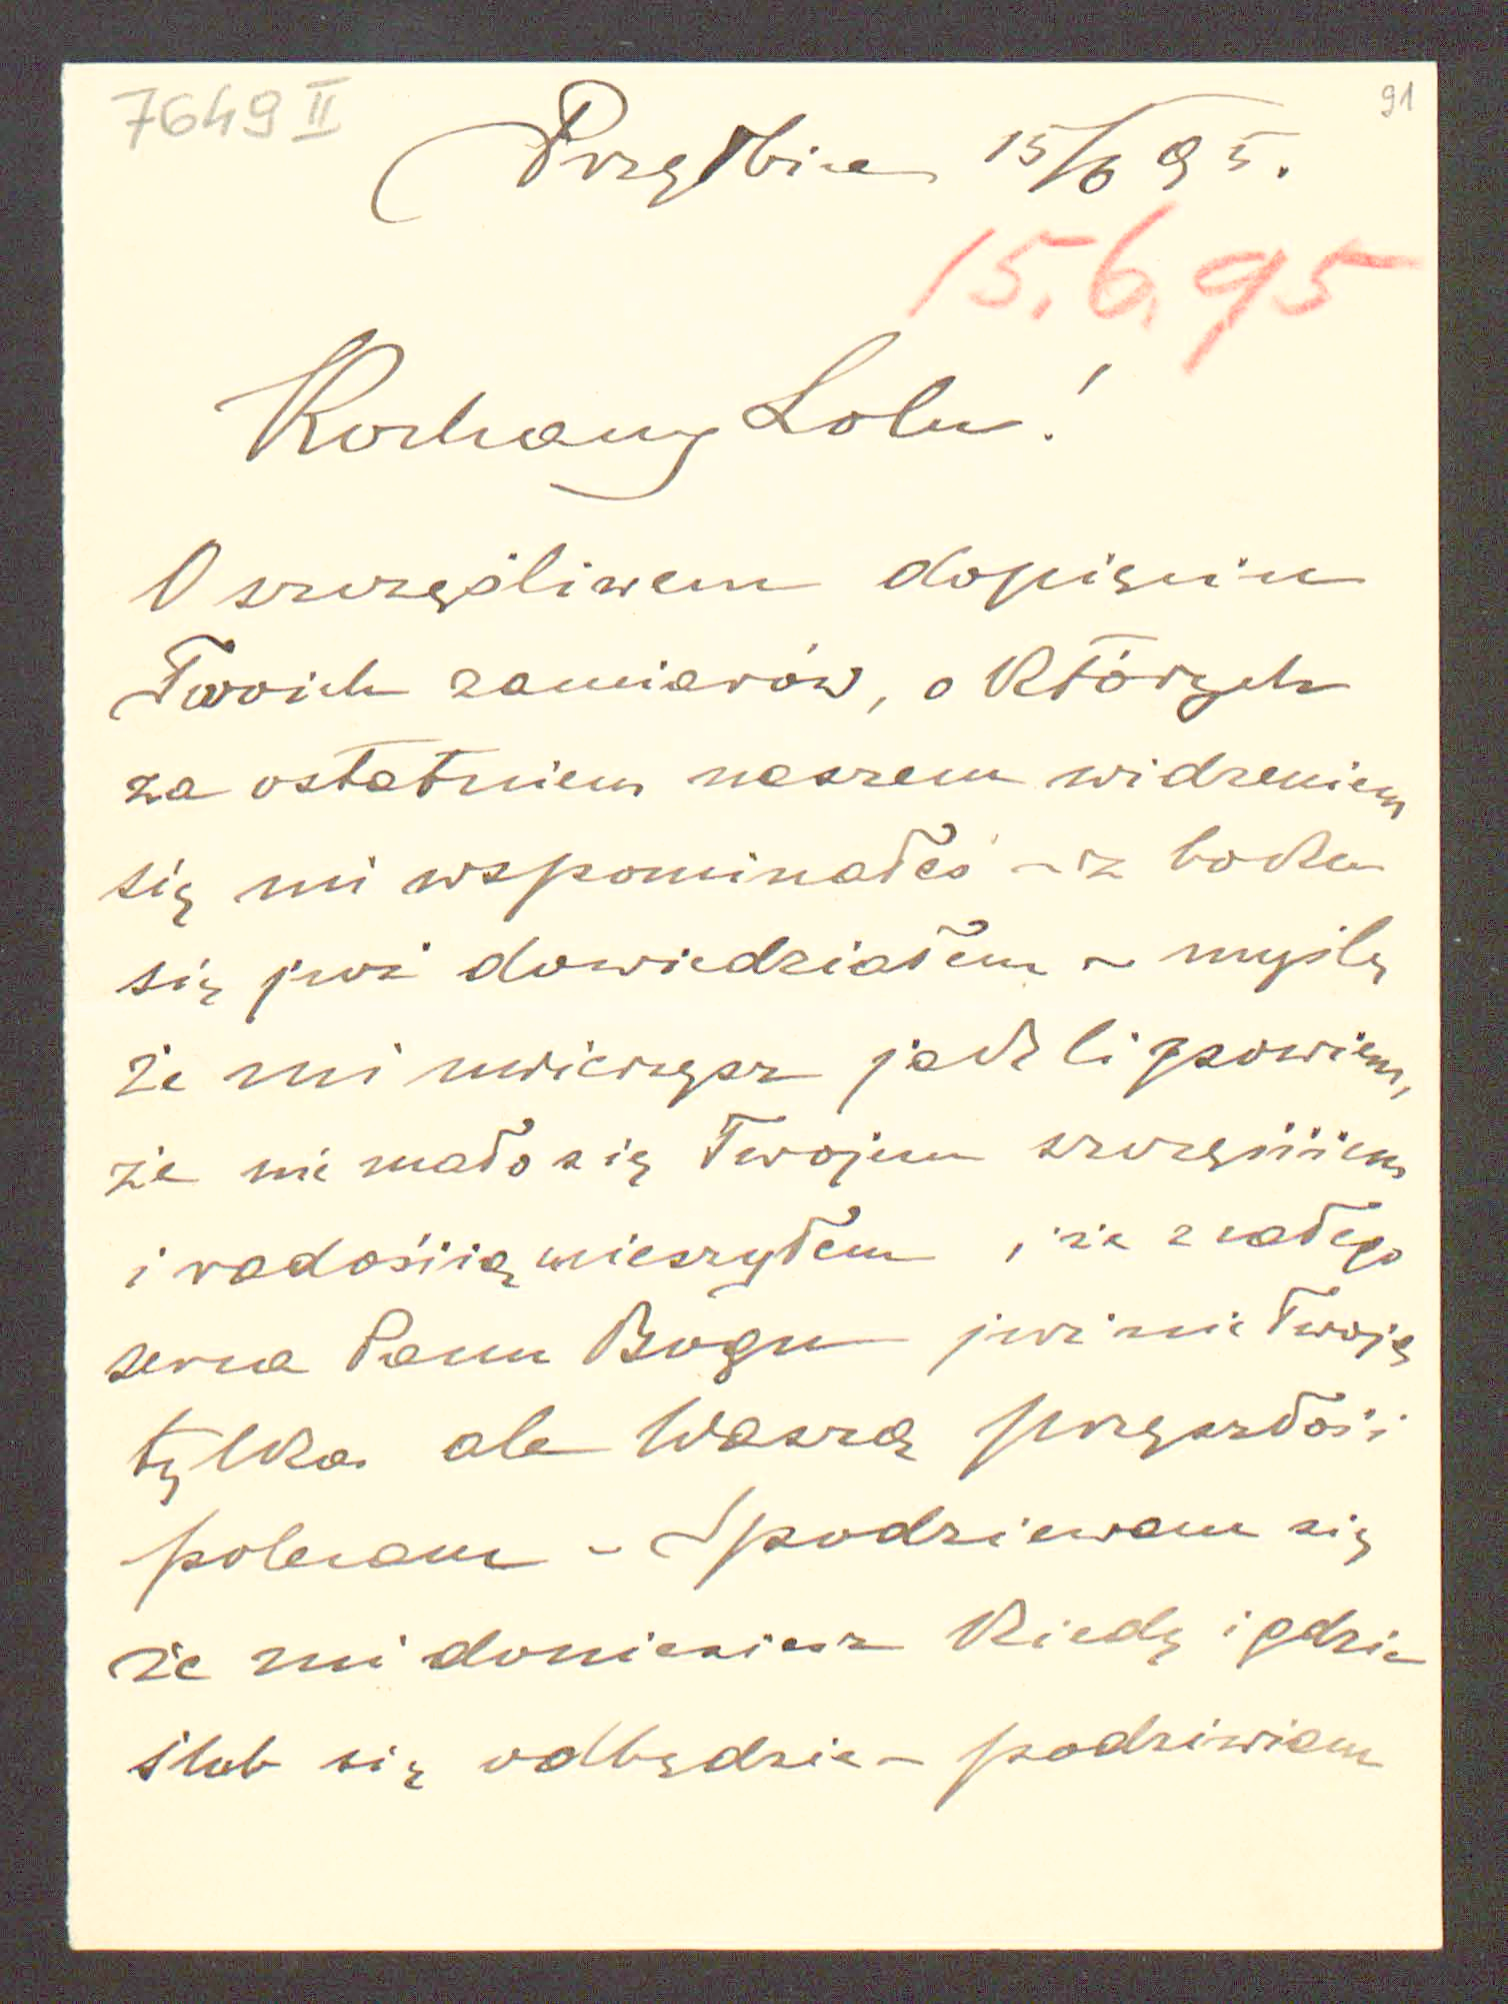 7649 II
91
15/6 95.
15.6.95
Kochany Lolu!
O szczęśliwem dopięciu
Twoich zamiarów, o których
za ostatniem naszem widzeniem
się mi wspominałeś – z boku
się już dowiedziałem – myślę
że mi uwierzysz jeżeli powiem,
że nie mało się Twojem szczęściem
i radością ucieszyłem, że z całego
serca Panu Bogu już nie Twoją
tylko ale Waszą przyszłość
polecam – Spodziewam się
że mi doniesiesz kiedy i gdzie
ślub się odbędzie – podziwiam